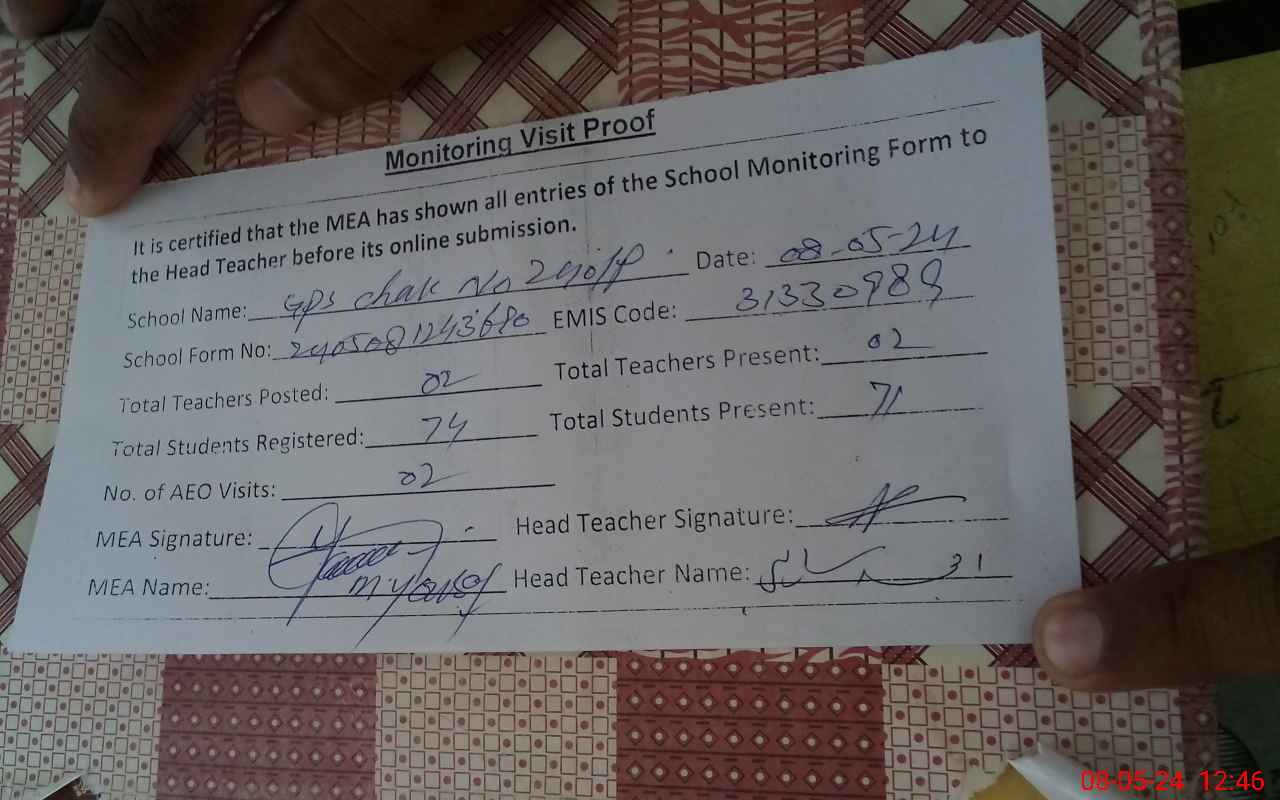 Monitoring Visit Proof
It is certified that the MEA has shown all entries of the School Monitoring Form to
the Head Teacher before its online submission.
School Name: GPS chak No Date: 08-05-24
School Form No: EMIS Code: 31330989
Total Teachers Posted: 02 Total Teachers Present: 02
Total Students Registered: 74 Total Students Present: 71
No. of AEO Visits: 02
MEA Signature: Head Teacher Signature:
MEA Name: M Yousaf Head Teacher Name:
08-05-24 12:46